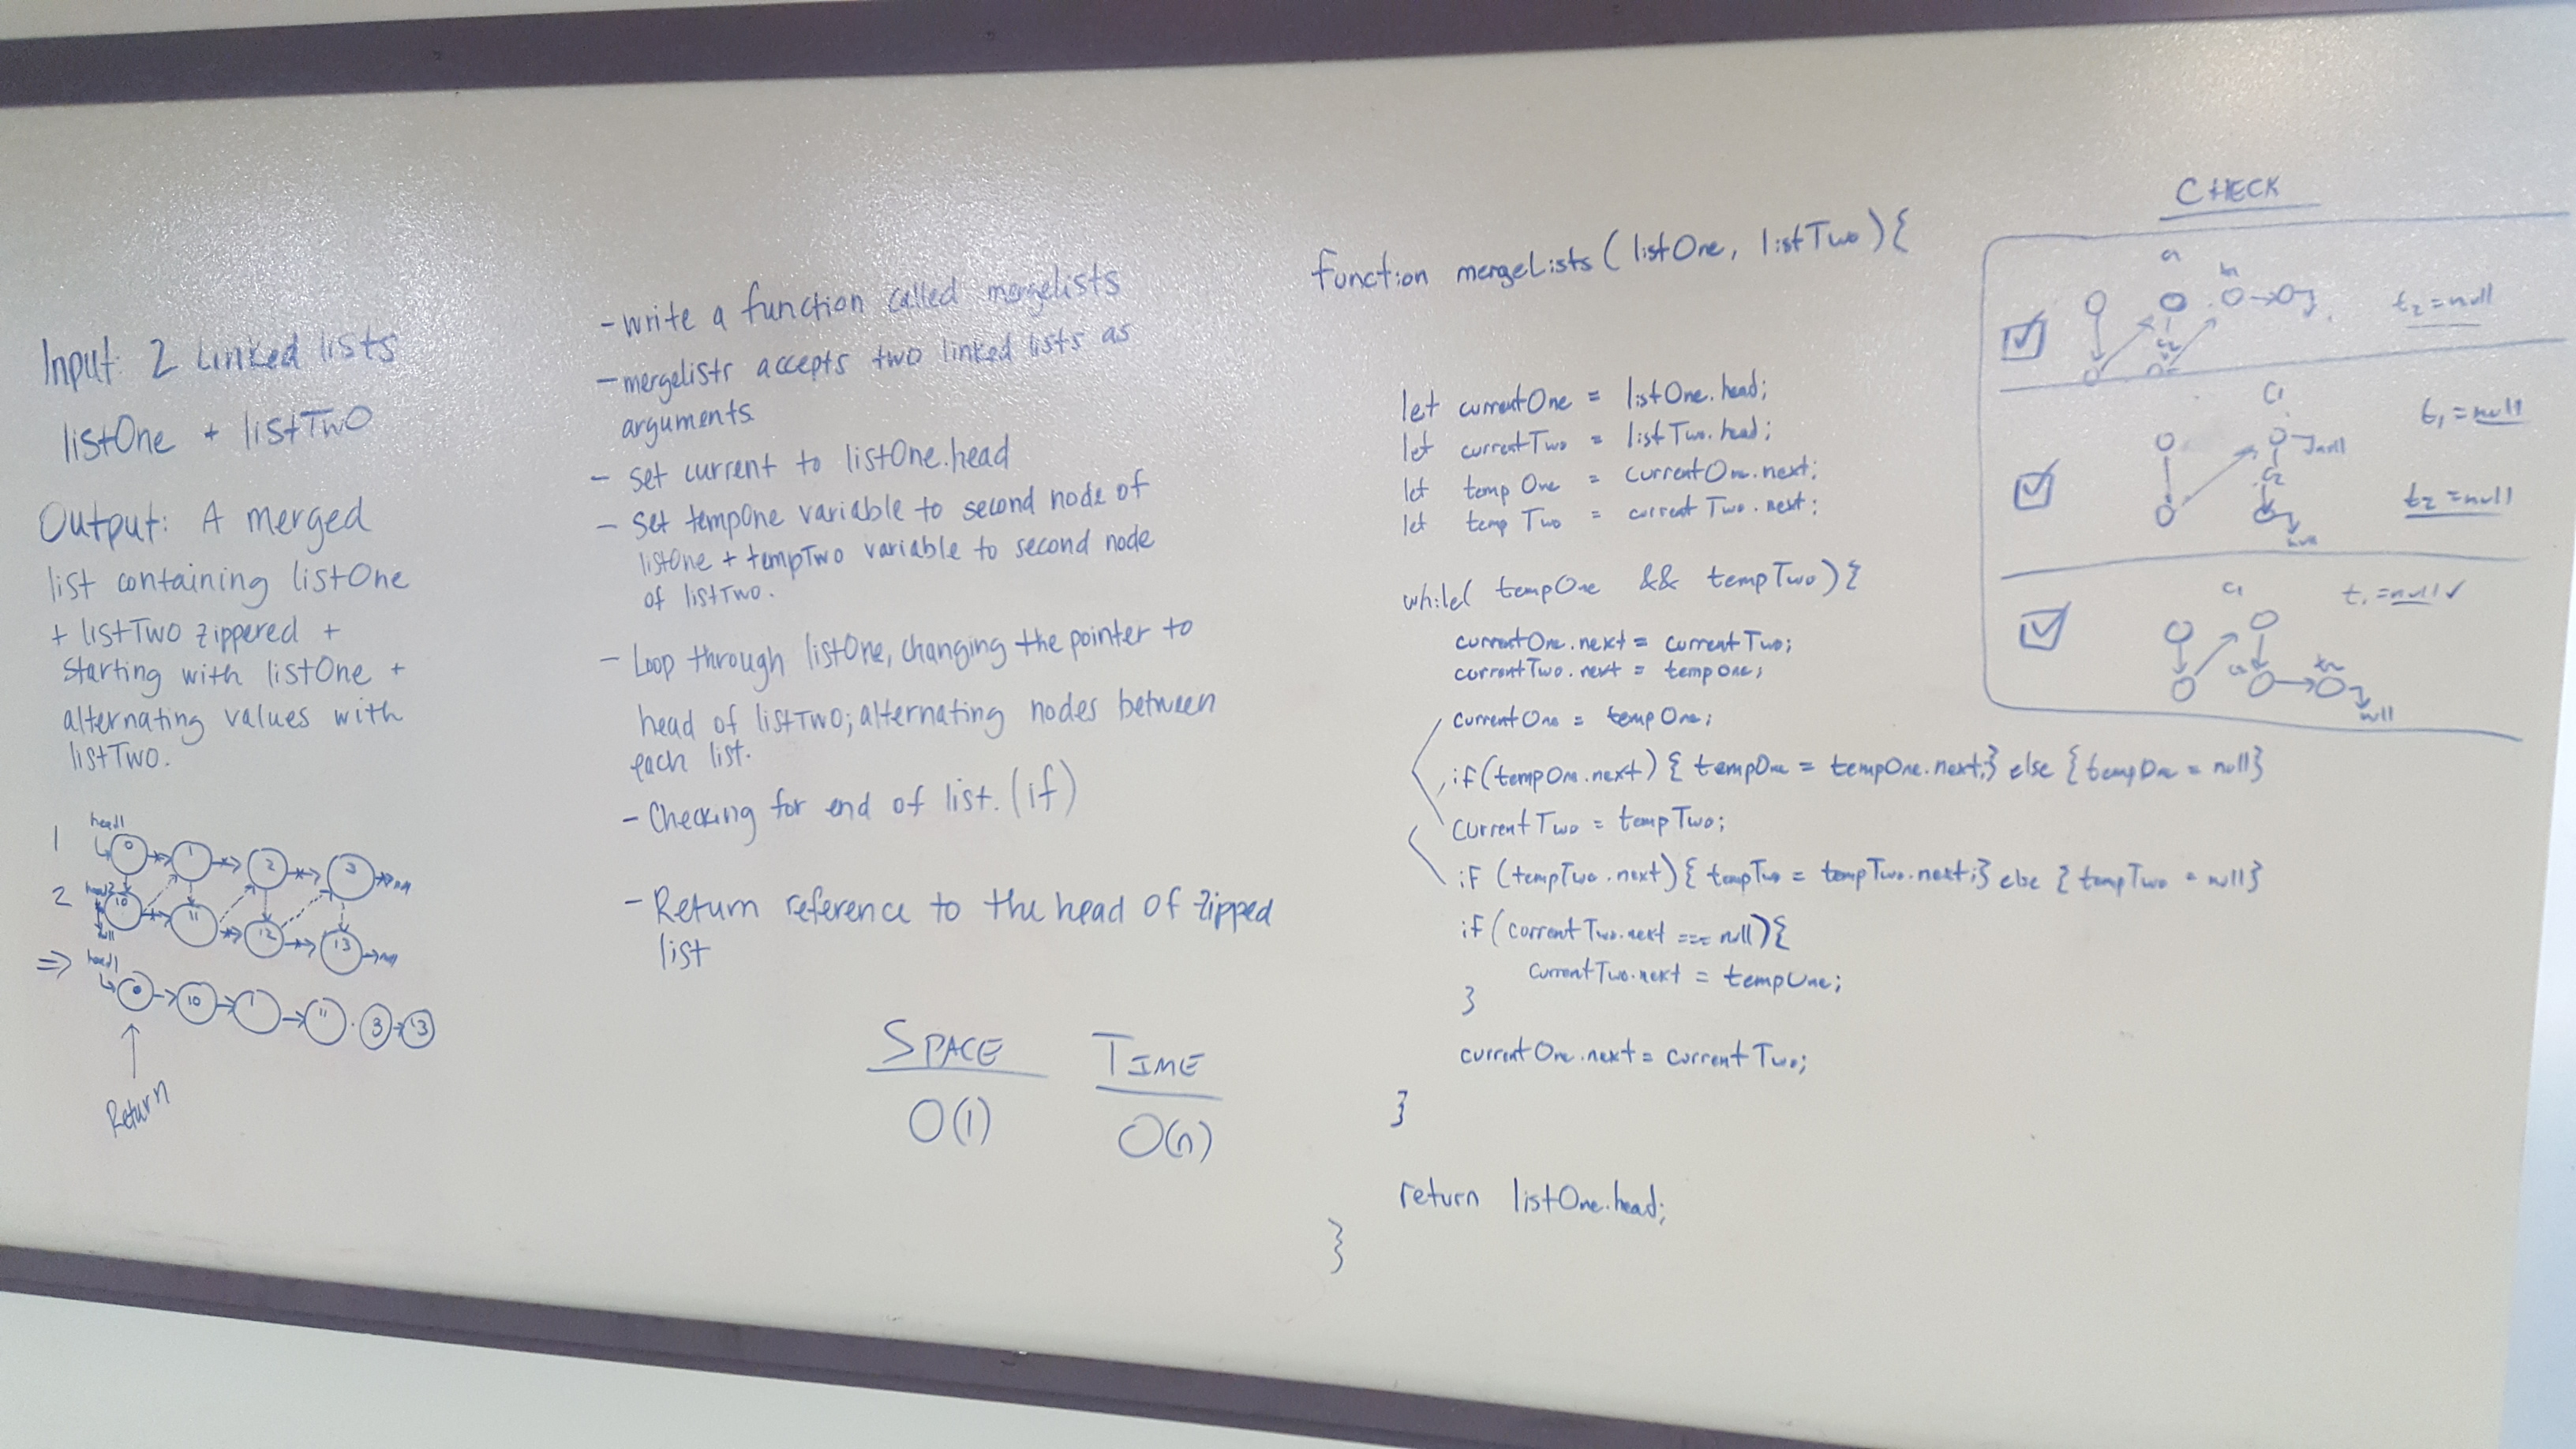 Input: 2 Linked lists
listOne + listTwo
Output: A merged
list containing listOne
+ listTwo zippered +
starting with listOne +
alternating values with
listTwo.
1
head1
0
1
2
3
2
head2
10
11
12
13
null
=> head1
0 10 1 11 3 13
Return
- write a function called mergelists
- mergelists accepts two linked lists as
arguments.
- set current to listOne.head
- Set tempOne variable to second node of
listOne + tempTwo variable to second node
of listTwo.
- Loop through listOne, changing the pointer to
head of listTwo; alternating nodes between
each list.
- Checking for end of list. (if)
- Return reference to the head of zipped
list
SPACE TIME
O(1) O(n)
function mergeLists (listOne, listTwo) {
let currentOne = listOne.head;
let currentTwo = listTwo.head;
let tempOne = currentOne.next;
let tempTwo = currentTwo.next;
while( tempOne && tempTwo) {
currentOne.next = currentTwo;
currentTwo.next = tempOne;
currentOne = tempOne;
if(tempOne.next) { tempOne = tempOne.next;} else {tempOne = null}
currentTwo = tempTwo;
if (tempTwo.next) { tempTwo = tempTwo.next;} else { tempTwo = null}
if (currentTwo.next === null) {
currentTwo.next = tempOne;
}
currentOne.next = currentTwo;
}
return listOne.head;
}
CHECK
t2 = null
c1
t1 = null
null
c2
t2 = null
null
c1
t1 = null ✓
null